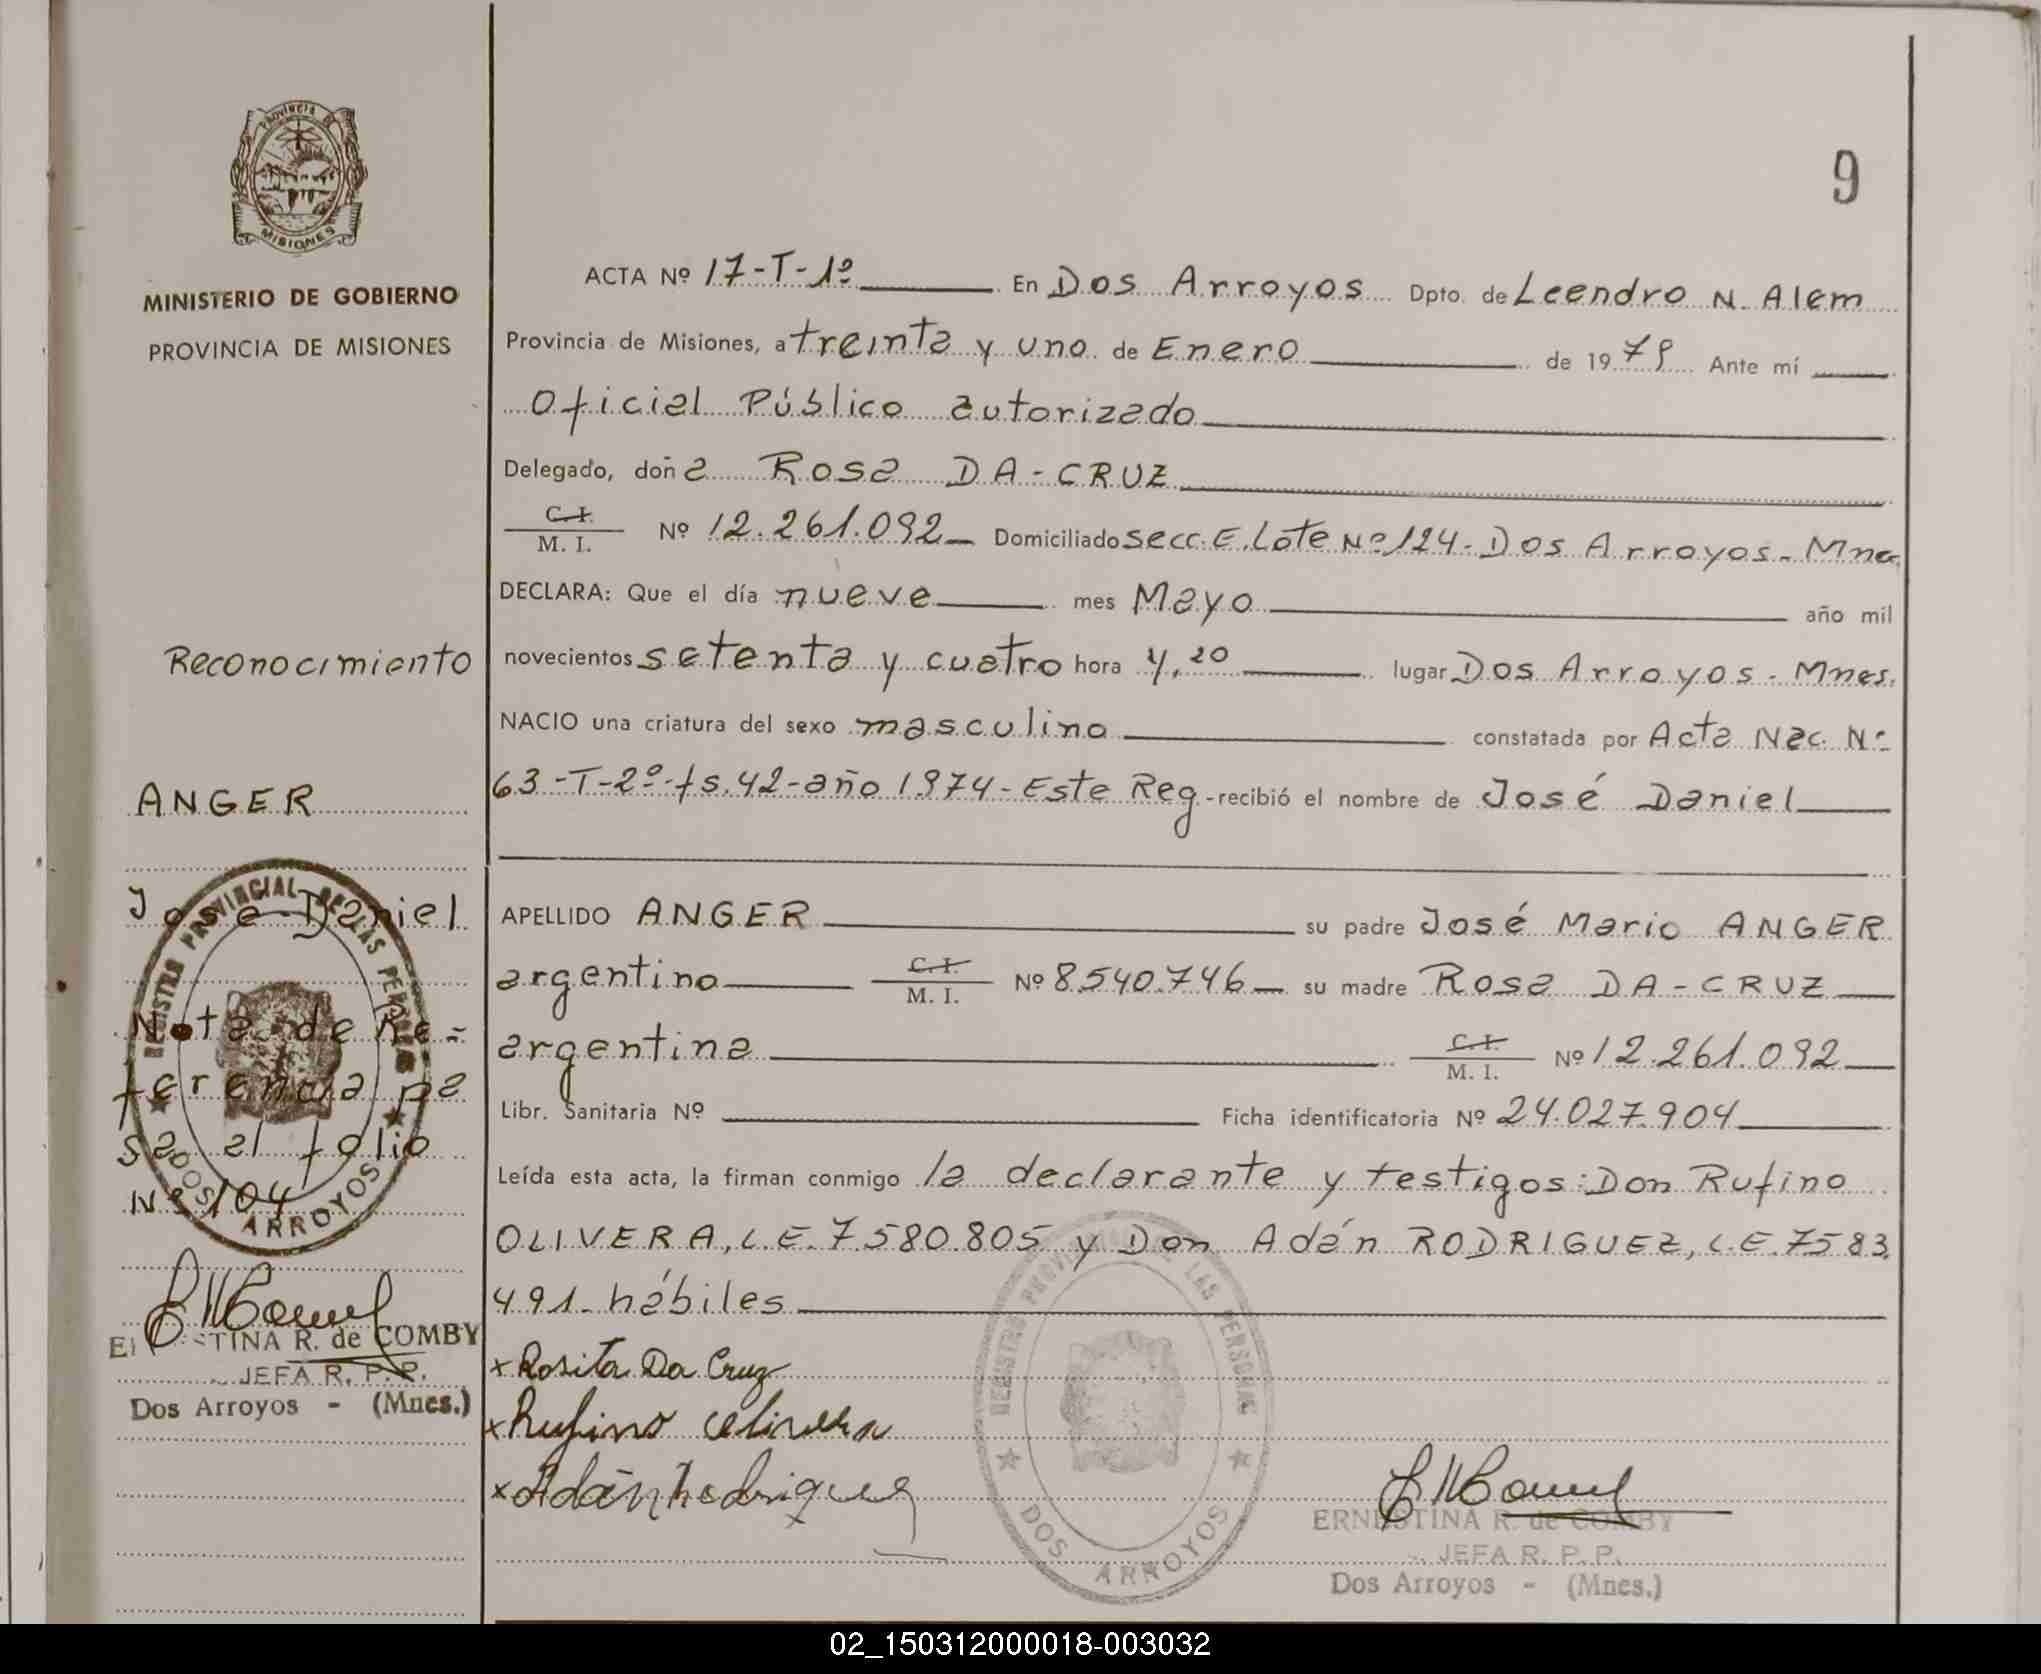 PROVINCIA DE
MISIONES
MINISTERIO DE GOBIERNO
PROVINCIA DE MISIONES
9
ACTA Nº 17-T-1º En Dos Arroyos Dpto. de Leandro N. Alem
Provincia de Misiones, a treinta y uno de Enero de 1979 Ante mí
Oficial Público autorizado
Delegado, doña Rosa DA-CRUZ
C.I.
M. I. Nº 12.261.092 Domiciliado Secc. E. Lote Nº 124- Dos Arroyos- Mnes
DECLARA: Que el día nueve mes Mayo año mil
novecientos setenta y cuatro hora 4,20 lugar Dos Arroyos- Mnes.
NACIO una criatura del sexo masculino constatada por Acta Nac. Nº
63-T-2º-fs.42-año 1974-Este Reg.-recibió el nombre de José Daniel
APELLIDO ANGER su padre José Mario ANGER
argentino C.I. M. I. Nº 8.540.746 su madre Rosa DA-CRUZ
argentina C.I. M. I. Nº 12.261.092
Libr. Sanitaria Nº Ficha identificatoria Nº 24.027.904
Leída esta acta, la firman conmigo la declarante y testigos: Don Rufino
OLIVERA, L.E. 7.580.805 y Don Adán RODRIGUEZ, L.E. 7583.
491- hábiles
x Rosita Da Cruz
x Rufino Olivera
x Adán Rodriguez
REGISTRO PROVINCIAL DE LAS PERSONAS
DOS ARROYOS
ERNESTINA R. de COMBY
JEFA R. P. P.
Dos Arroyos - (Mnes.)
Reconocimiento
ANGER
José Daniel
Nota de Re=
ferencia pa
sa al folio
Nº 104
REGISTRO PROVINCIAL DE LAS PERSONAS
DOS ARROYOS
STINA R. de COMBY
JEFA R. P. P.
Dos Arroyos - (Mnes.)
02_150312000018-003032